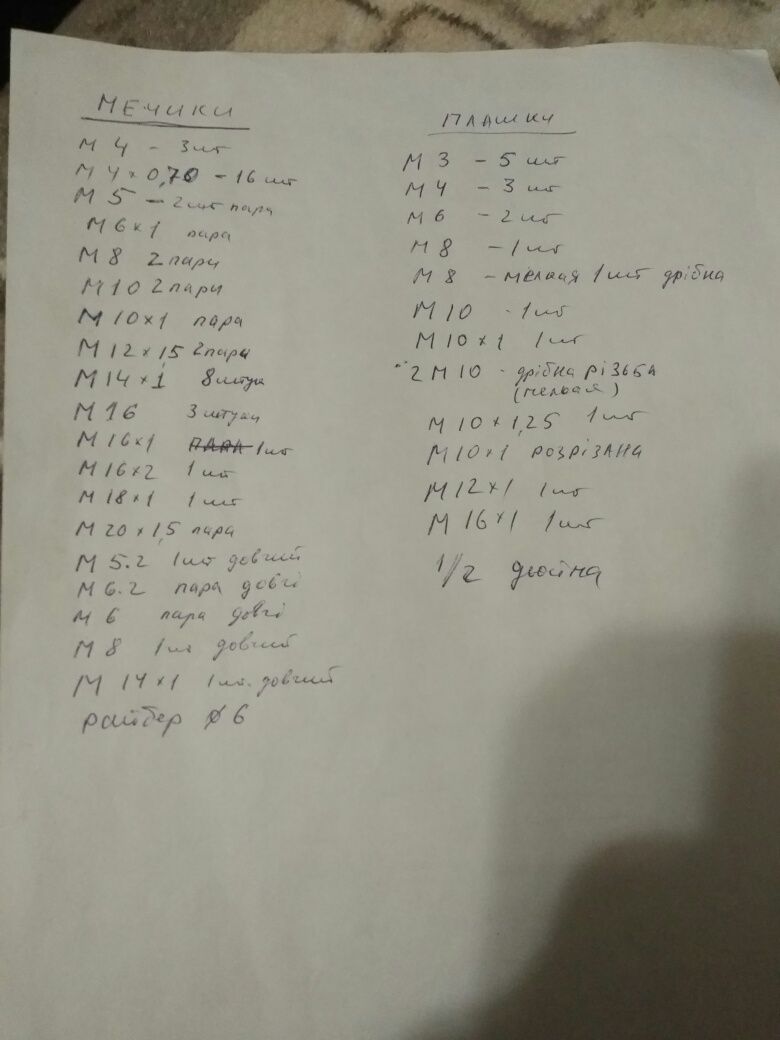 МЕЧИКИ
М 4 - 3 шт
М 4 × 0,70 - 16 шт
М 5 - 2 шт пара
М 6×1 пара
М 8 2 пари
М 10 2 пари
М 10×1 пара
М 12 × 1,5 2 пари
М 14 × 1 8 штук
М 16 3 штуки
М 16×1 1 шт
М 16×2 1 шт
М 18×1 1 шт
М 20 × 1,5 пара
М 5.2 1 шт довгий
М 6.2 пара довгі
М 6 пара довгі
М 8 1 шт довгий
М 14×1 1 шт. довгий
райбер ⌀ 6
ПЛАШКИ
М 3 - 5 шт
М 4 - 3 шт
М 6 - 2 шт
М 8 - 1 шт
М 8 - мелкая 1 шт дрібна
М 10 - 1 шт
М 10 × 1 1 шт
2 М 10 - дрібна РІЗЬБА
(мелкая)
М 10 × 1,25 1 шт
М 10×1 РОЗРІЗАНА
М 12×1 1 шт
М 16×1 1 шт
1/2 дюйма